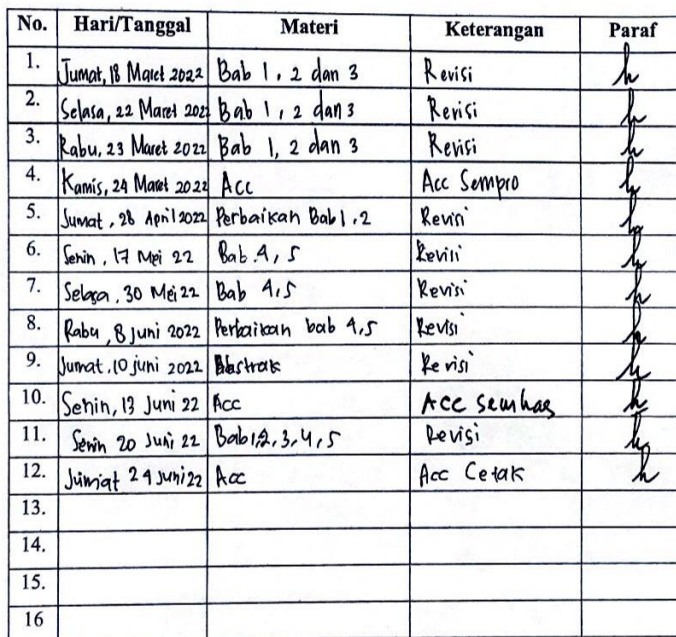 No. Hari/Tanggal Materi Keterangan Paraf
1. Jumat, 18 Maret 2022 Bab 1, 2 dan 3 Revisi
2. Selasa, 22 Maret 2022 Bab 1, 2 dan 3 Revisi
3. Rabu, 23 Maret 2022 Bab 1, 2 dan 3 Revisi
4. Kamis, 24 Maret 2022 Acc Acc Sempro
5. Jumat, 28 April 2022 Perbaikan Bab 1, 2 Revisi
6. Senin, 17 Mei 22 Bab 4, 5 Revisi
7. Selasa, 30 Mei 22 Bab 4,5 Revisi
8. Rabu, 8 Juni 2022 Perbaikan bab 4,5 Revisi
9. Jumat, 10 juni 2022 Abstrak Revisi
10. Senin, 13 Juni 22 Acc Acc semhas
11. Senin 20 Juni 22 Bab 1,2,3,4,5 Revisi
12. Jumat 24 Juni 22 Acc Acc Cetak
13.
14.
15.
16